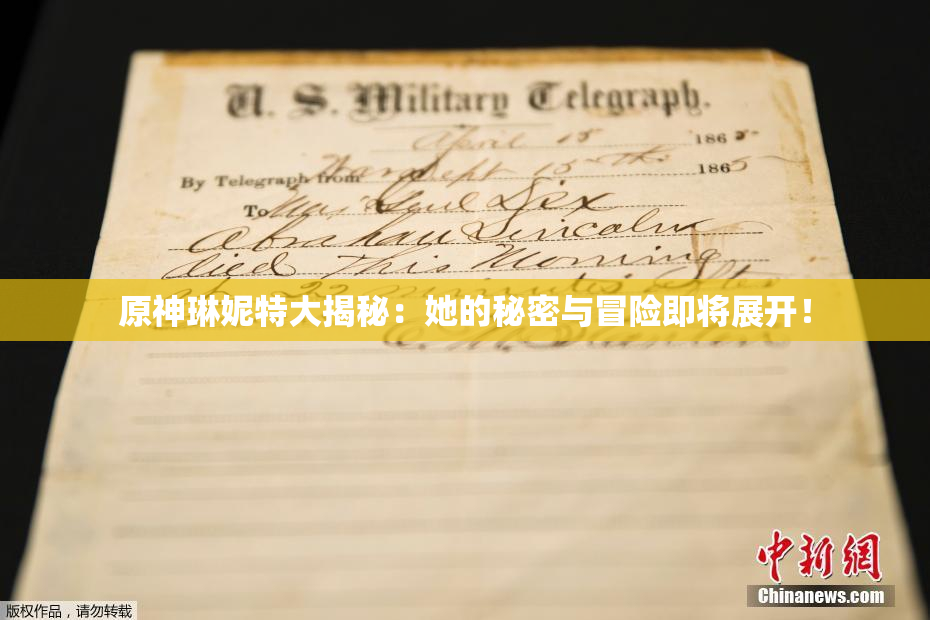 U. S. Military Telegraph.
April 15 1865
By Telegraph from War Dept 15th 1865
To Maj Genl Dix
Abraham Lincoln
died This Morning
at 22 minutes after
原神琳妮特大揭秘：她的秘密与冒险即将展开！
中新网
Chinanews.com
版权作品，请勿转载